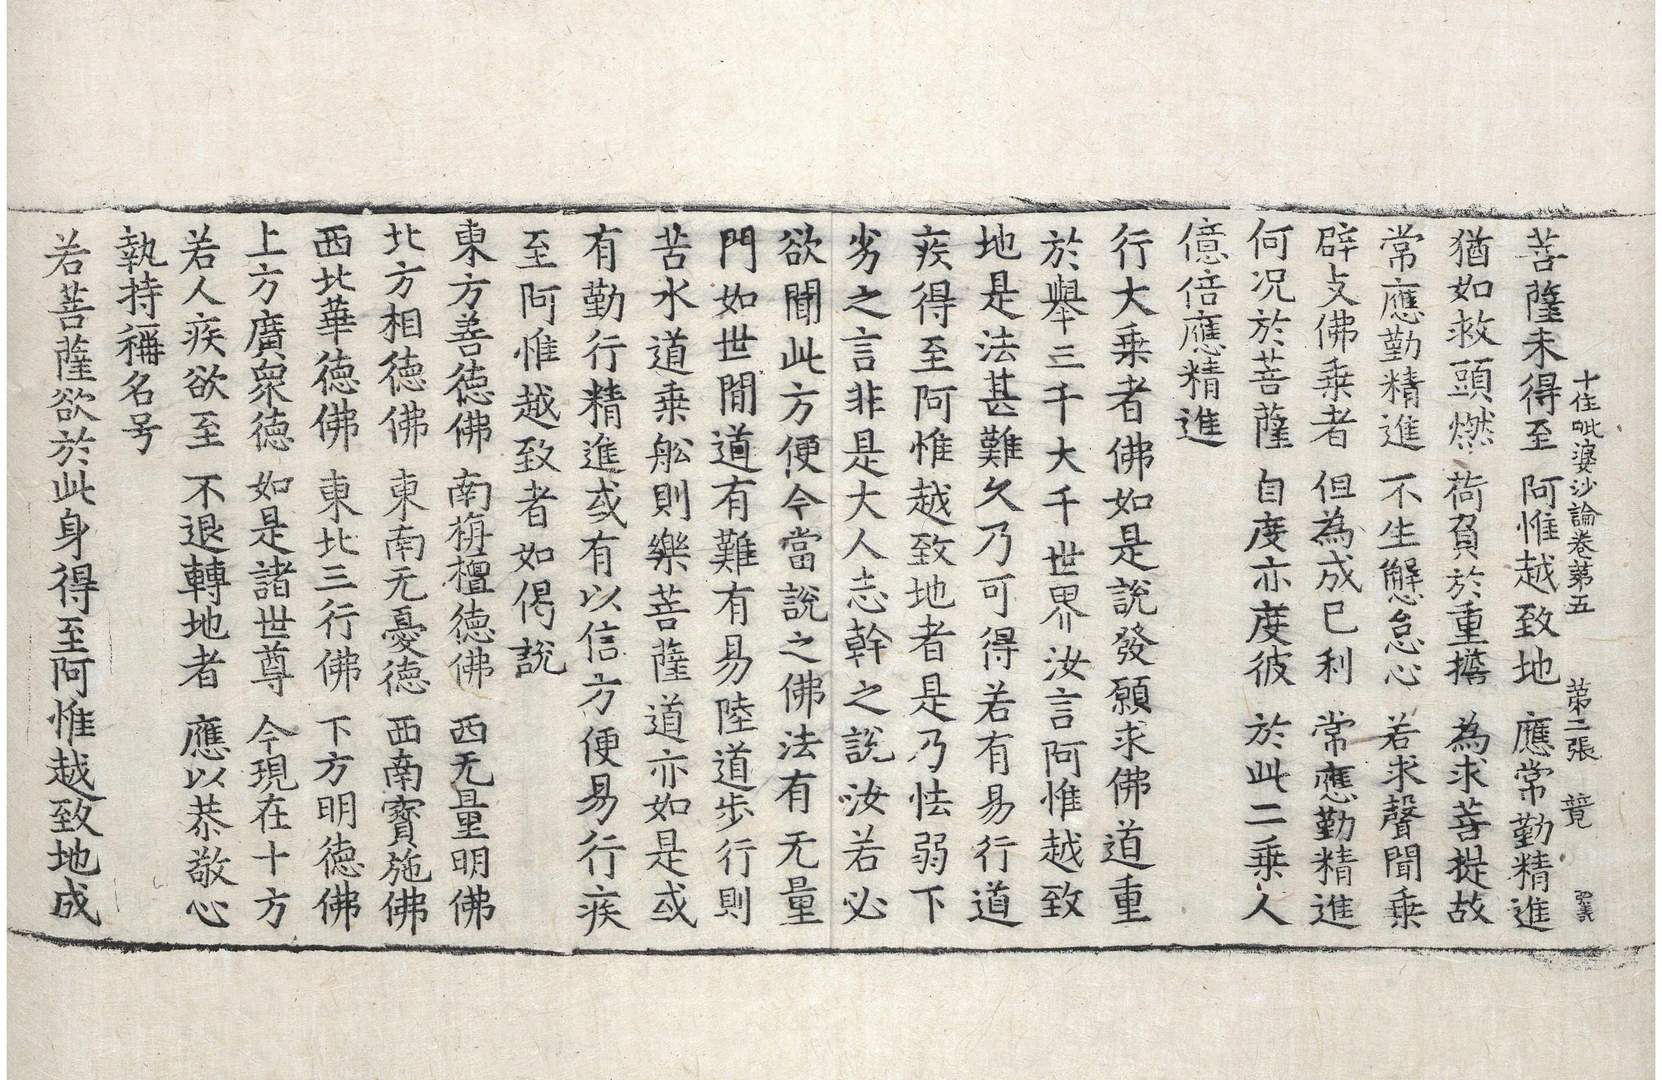 十住毗婆沙論卷苐五 苐二張 竟
菩薩未得至 阿惟越致地 應常勤精進
猶如救頭燃 荷負於重擔 為求菩提故
常應勤精進 不生懈怠心 若求聲聞乗
辟支佛乗者 但為成已利 常應勤精進
何况於菩薩 自度亦度彼 於此二乗人
億倍應精進
行大乗者佛如是說發願求佛道重
於舉三千大千世界汝言阿惟越致
地是法甚難久乃可得若有易行道
疾得至阿惟越致地者是乃怯弱下
劣之言非是大人志幹之說汝若必
欲聞此方便今當說之佛法有无量
門如世間道有難有易陸道步行則
苦水道乗舩則樂菩薩道亦如是或
有勤行精進或有以信方便易行疾
至阿惟越致者如偈說
東方善德佛 南栴檀德佛 西无量明佛
北方相德佛 東南无憂德 西南寶施佛
西北華德佛 東北三行佛 下方明德佛
上方廣衆德 如是諸世尊 今現在十方
若人疾欲至 不退轉地者 應以恭敬心
執持稱名号
若菩薩欲於此身得至阿惟越致地成